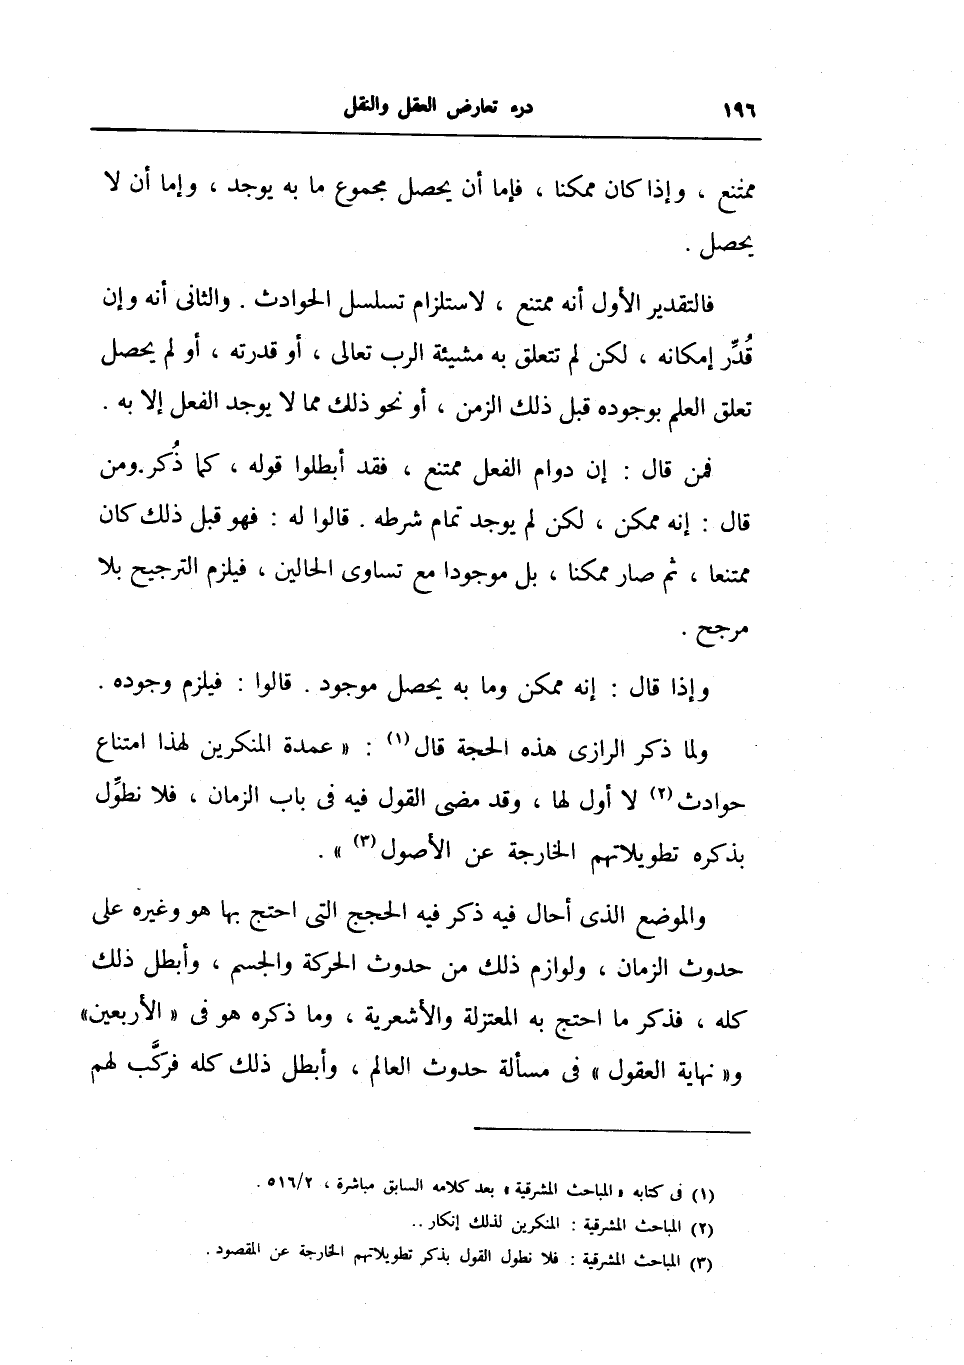 ١٩٦ درء تعارض العقل والنقل
ممتنع ، وإذا كان ممكنا ، فإما أن يحصل مجموع ما به يوجد ، وإما أن لا
يحصل .
فالتقدير الأول أنه ممتنع ، لاستلزام تسلسل الحوادث . والثانى أنه وإن
قُدِّر إمكانه ، لكن لم تتعلق به مشيئة الرب تعالى ، أو قدرته ، أو لم يحصل
تعلق العلم بوجوده قبل ذلك الزمن ، أو نحو ذلك مما لا يوجد الفعل إلا به .
فمن قال : إن دوام الفعل ممتنع ، فقد أبطلوا قوله ، كما ذُكر.ومن
قال : إنه ممكن ، لكن لم يوجد تمام شرطه . قالوا له : فهو قبل ذلك كان
ممتنعا ، ثم صار ممكنا ، بل موجودا مع تساوى الحالين ، فيلزم الترجيح بلا
مرجح .
وإذا قال : إنه ممكن وما به يحصل موجود . قالوا : فيلزم وجوده .
ولما ذكر الرازى هذه الحجة قال(١) : « عمدة المنكرين لهذا امتناع
حوادث(٢) لا أول لها ، وقد مضى القول فيه فى باب الزمان ، فلا نطوِّل
بذكره تطويلاتهم الخارجة عن الأصول(٣) » .
والموضع الذى أحال فيه ذكر فيه الحجج التى احتج بها هو وغيره على
حدوث الزمان ، ولوازم ذلك من حدوث الحركة والجسم ، وأبطل ذلك
كله ، فذكر ما احتج به المعتزلة والأشعرية ، وما ذكره هو فى « الأربعين»
و« نهاية العقول » فى مسألة حدوث العالم ، وأبطل ذلك كله فركَّب لهم
(١) فى كتابه «المباحث المشرقية» بعد كلامه السابق مباشرة ، ٥١٦/٢ .
(٢) المباحث المشرقية : المنكرين لذلك إنكار ..
(٣) المباحث المشرقية : فلا نطول القول بذكر تطويلاتهم الخارجة عن المقصود .